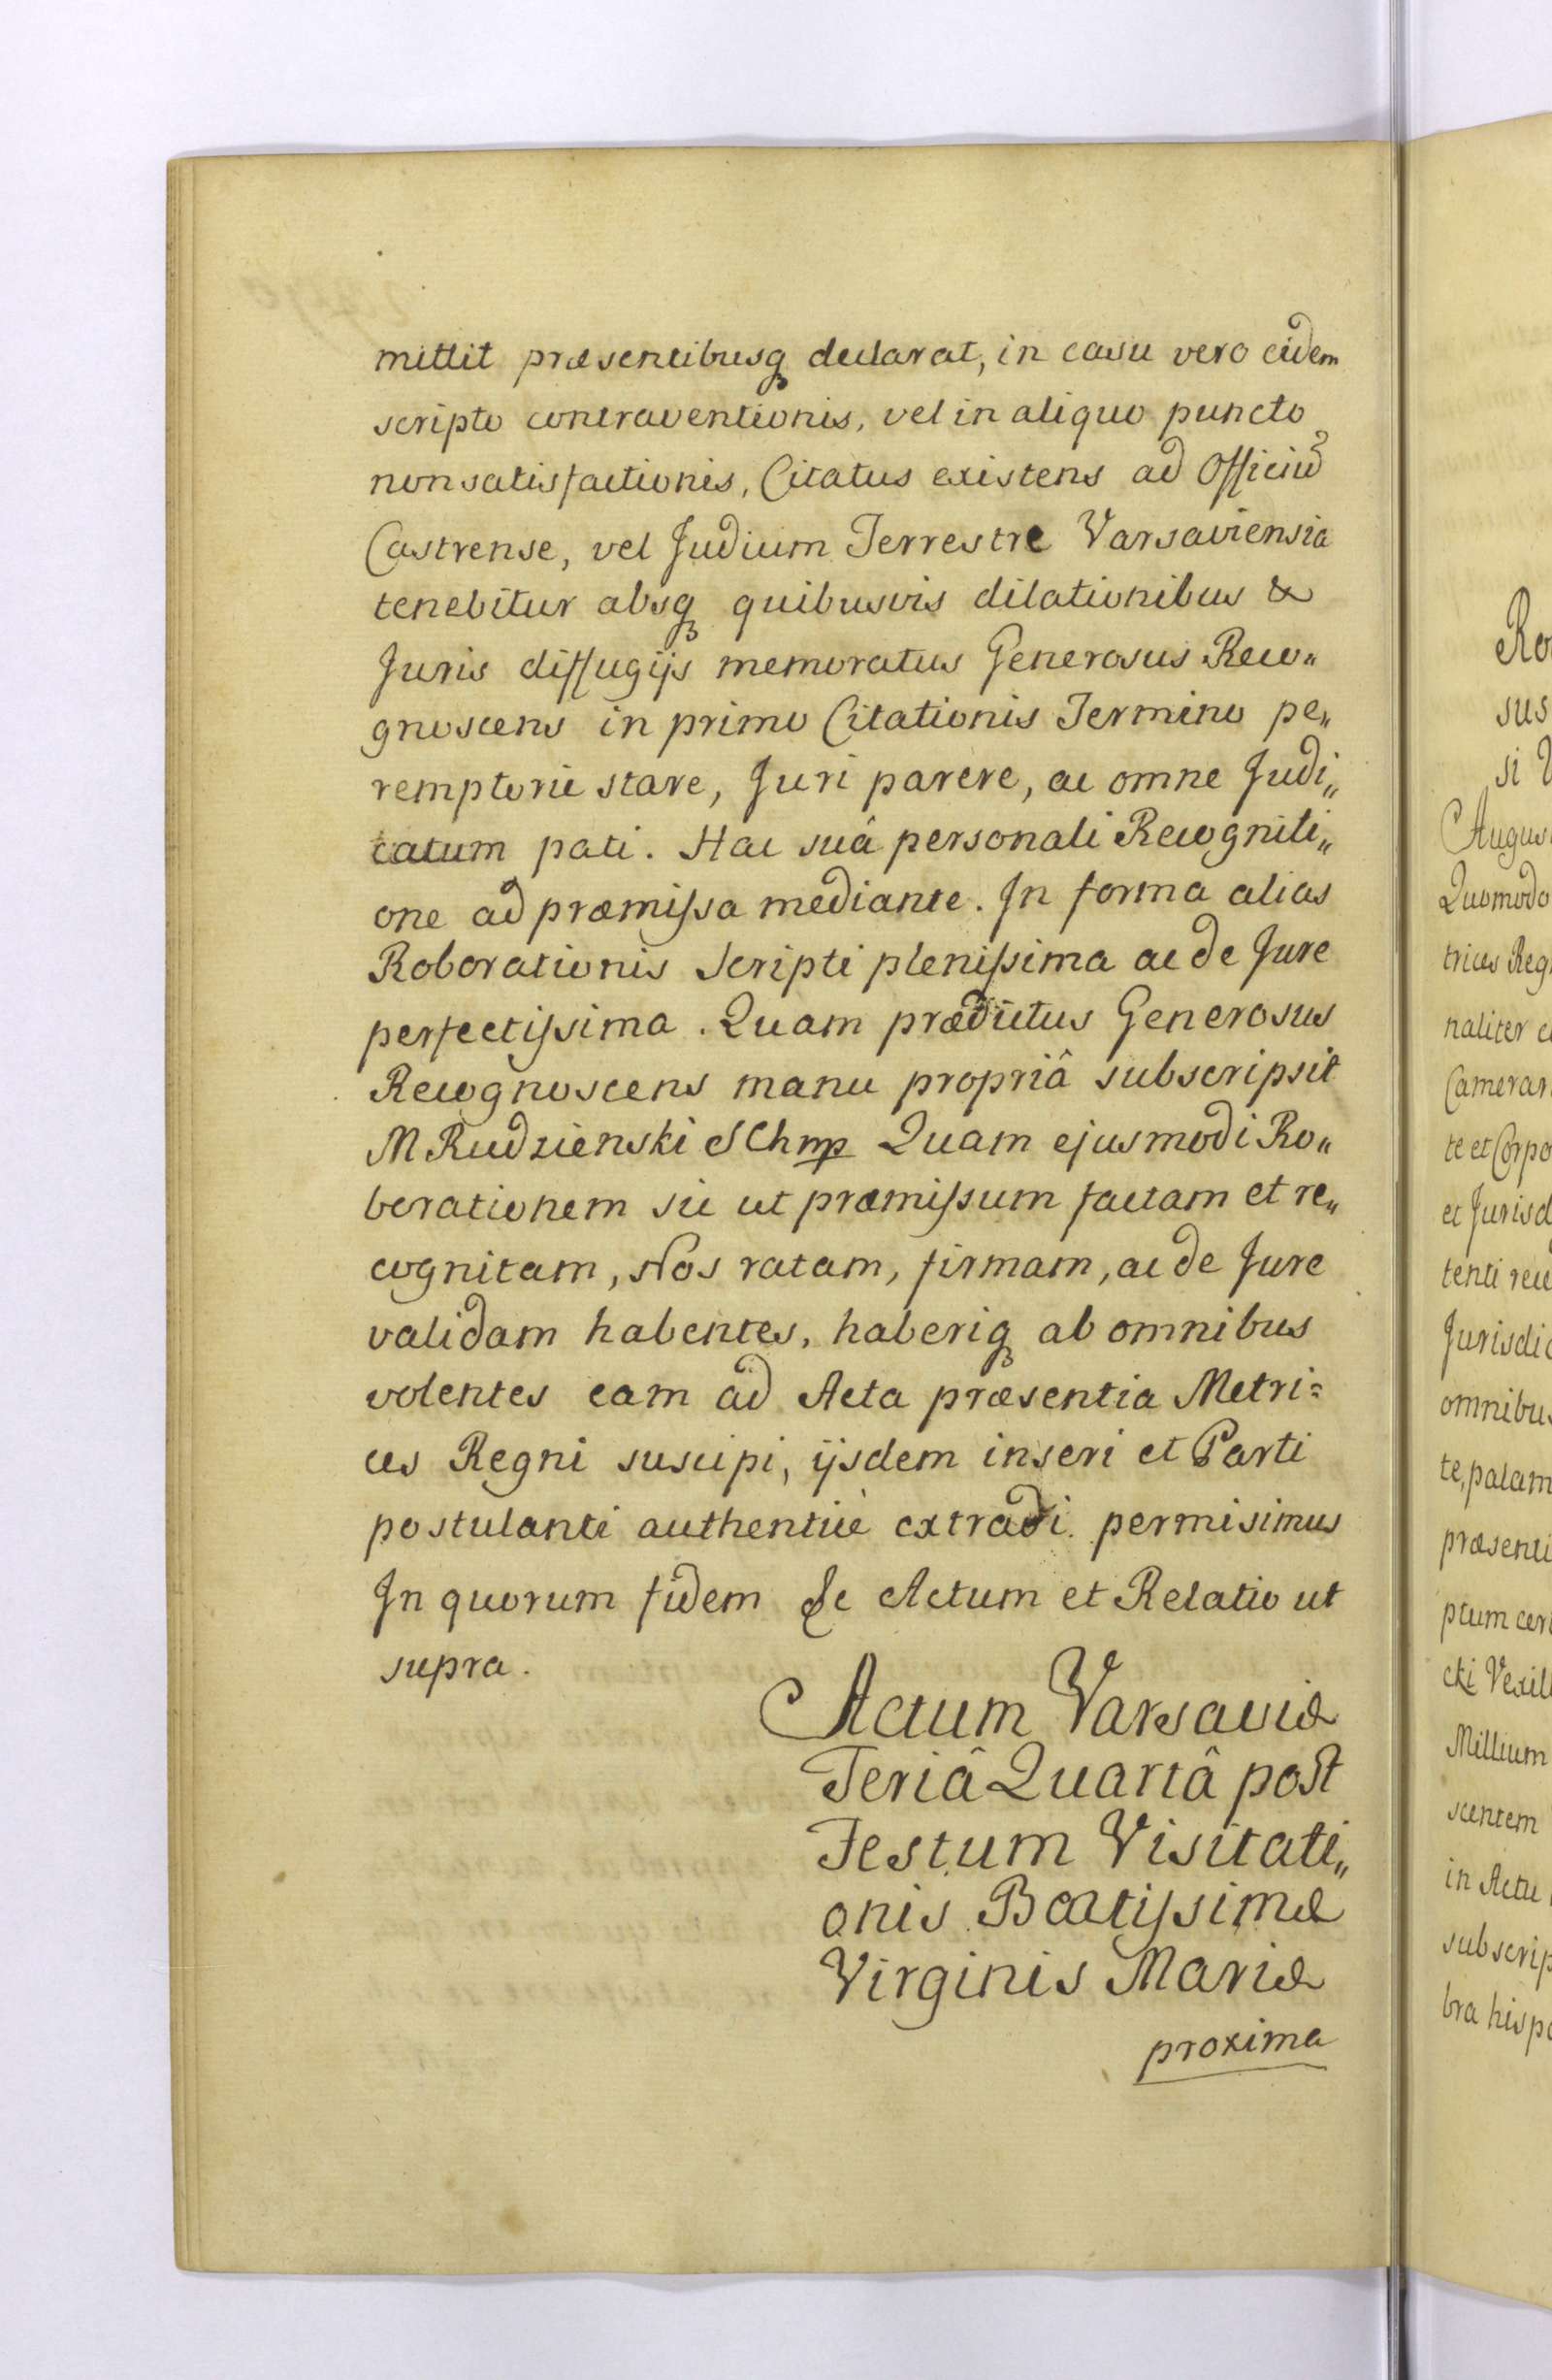 mittit præsentibusq declarat, in casu vero eidem
scripto contraventionis, vel in aliquo puncto
non satisfactionis, Citatus existens ad Officiu
Castrense, vel Judicium Terrestre Varsaviensia
tenebitur absq quibusvis dilationibus &
Juris diffugijs memoratus Generosus Reco„
gnoscens in primo Citationis Termino pe„
remptorie stare, Juri parere, ac omne Judi„
catum pati. Hac suâ personali Recogniti„
one ad præmissa mediante. In forma alias
Roborationis Scripti plenissima ac de Jure
perfectissima. Quam prædictus Generosus
Recognoscens manu propriâ subscripsit
M Rudzienski SChmp Quam ejusmodi Ro„
borationem sic ut præmissum factam et re„
cognitam, Nos ratam, firmam, ac de Jure
validam habentes, haberiq ab omnibus
volentes eam ad Acta præsentia Metri=
ces Regni suscipi, ijsdem inseri et Parti
postulanti authenticè extradi permisimus
In quorum fidem &c Actum et Relatio ut
supra.
Actum Varsaviæ
Feriâ Quartâ post
Festum Visitati„
onis Beatissimæ
Virginis Mariæ
proxima
Ro
sus
si
Augus
Quomodo
trices Reg
naliter c
Camerar
te et Corpo
et Jurisd
tenti rec
Jurisdic
omnibus
te, palam
præsenti
ptum cer
cki Vexil
Millium
scentem
in Actu
subscrip
bra hisp